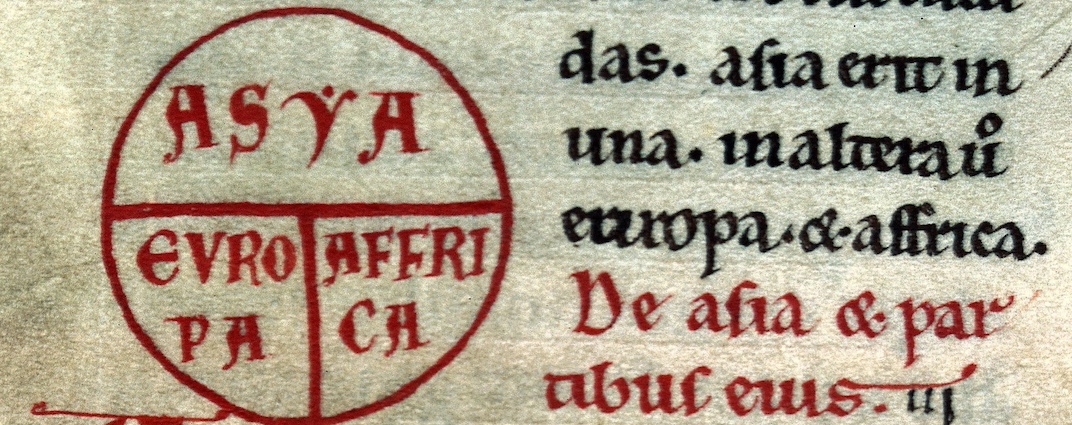 ASYA
EVRO
PA
AFFRI
CA
das. asia erit in
una. in altera uͦ
europa. & affrica.
De asia & par
tibus eius. iij